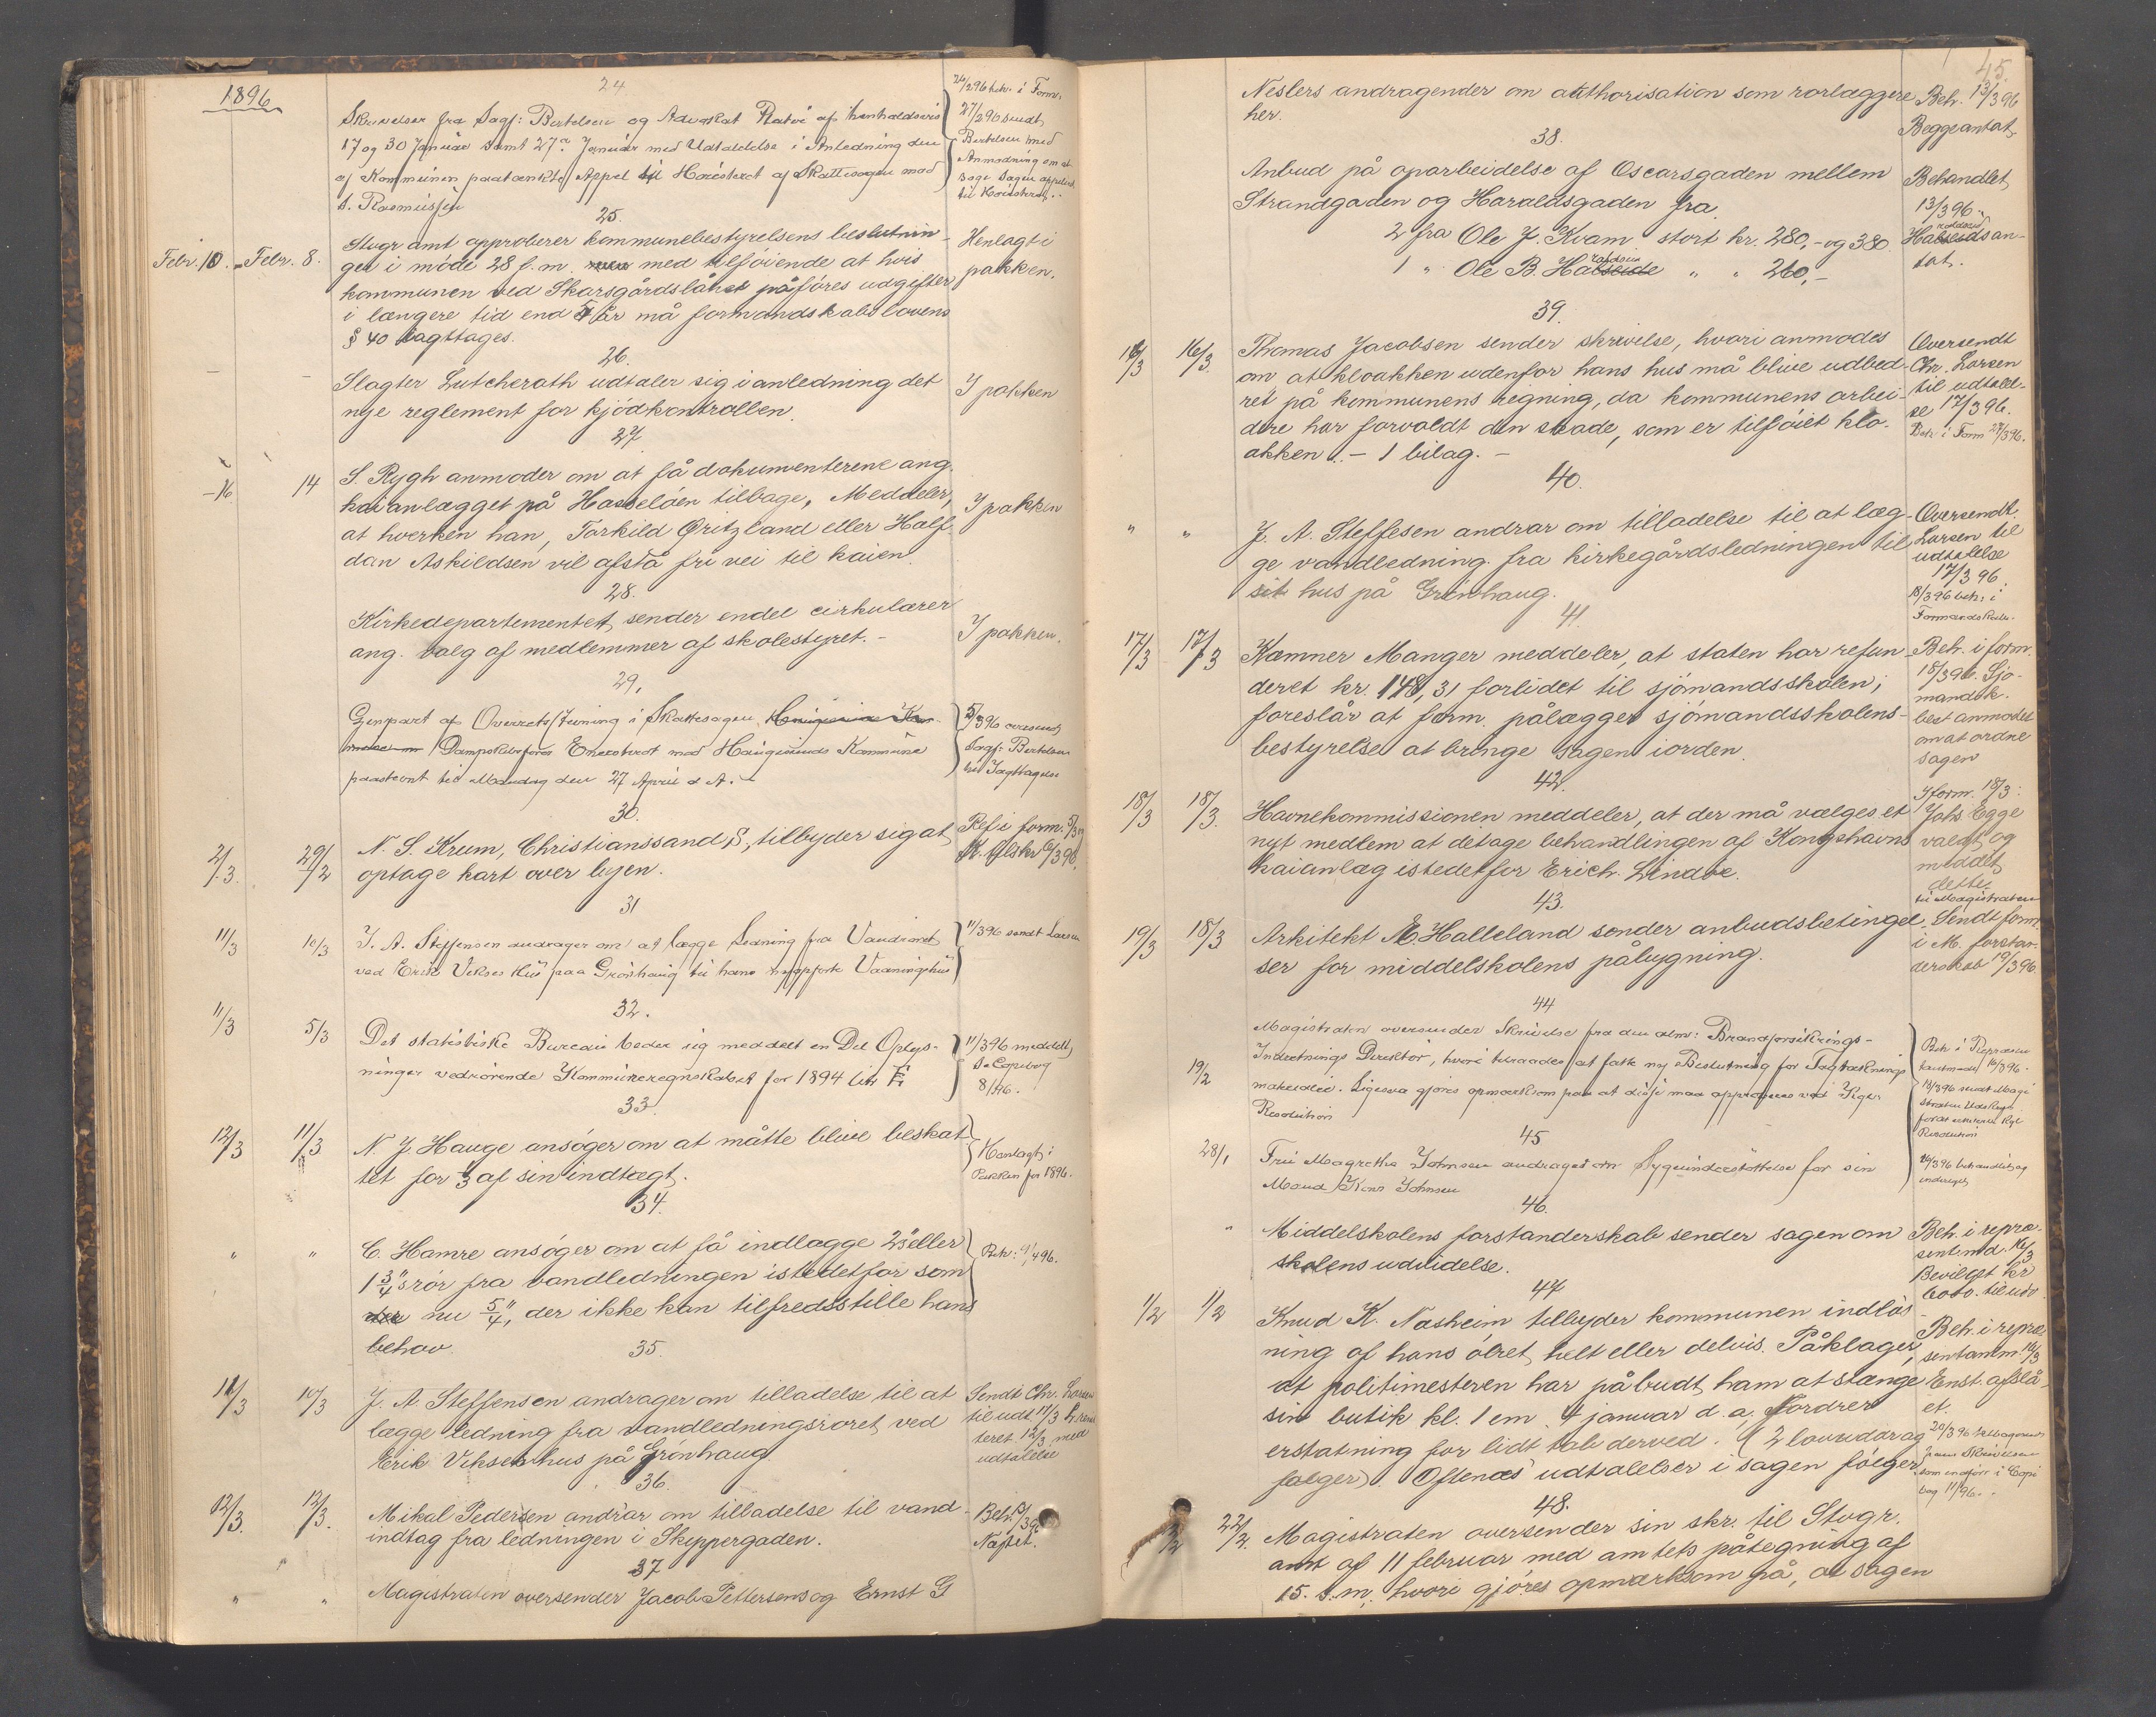 1896
24.
Skrivelser fra Sagf: Bertelsen og Advokat af henholdsvis
17 og 30 Januar samt 27de Januar med Udtalelse i Anledning den
af Kommunen paatænkte Appel til Høiesteret af Skattesagen mod
S. Rasmussen
26/2 96 beh. i Form.
27/2 96 sendt
Bertelsen med
Anmodning om at
sagen
til Høiesteret.
25.
Febr. 10. - Febr. 8.
Stvgr amt approberer kommunebestyrelsens beslutnin-
ger i möde 28 f.m. med tilföiende at hvis
kommunen ved Skarsgårdslånet påföres udgifter
i længere tid end 5 år må formandskabslovens
§ 40 iagttages.
Henlagt i
pakken.
26.
Slagter Lutcherath udtaler sig i anledning det
nye reglement for kjödkontrollen.
I pakken
27
- 16 14
S. Rygh anmoder om at få dokumenterne ang.
kaianlægget på Hasselöen tilbage. Meddeler,
at hverken han, Torkild Qritzland eller Half-
dan Askildsen vil afstå fri vei til kaien.
I pakken
28.
Kirkedepartementet sender endel cirkulærer
ang. valg af medlemmer af skolestyret. -
I pakken.
29.
Genpart af Overretsstevning i Skattesagen
Dampskibsfører Enerstvedt mod Haugesunds Kommune
paastevnt til Mandag den 27 April d. A.
5/3 96 oversendt
Sagf: Bertelsen
til Iagttagelse
30.
2/3. 29/2
N. S. Krum, Christianssand S, tilbyder sig at
optage kart over byen.
Ref i form. 5/3
6/3 96.
31
11/3 10/3
J. A. Steffensen andrager om at lægge Ledning fra Vandröret
ved Erik Vikses Hus paa Grönhaug til hans nyopförte Vaaningshus
11/3 96 sendt Larsen
32.
11/3 5/3
Det statistiske Bureau beder sig meddelt en Del Oplys-
ninger vedrörende Kommuneregnskabet for 1894
11/3 96 meddelt
se Copibog
8/96.
33.
12/3 11/3
N. J. Hauge ansöger om at måtte blive beskat-
tet for 3 af sin indtægt.
Henlagt i
Pakken for 1896.
34.
" "
C. Hamre ansöger om at få indlægge 2" eller
1 3/4" rör fra vandledningen istedetfor som
nu 5/4", der ikke kan tilfredsstille hans
behov.
Beh: 9/4 96.
35.
11/3 10/3
J. A. Steffensen andrager om tilladelse til at
lægge ledning fra vandledningsröret ved
Erik Viksens hus på Grönhaug
Sendt Chr. Larsen
til udt. 11/3
teret 12/3 med
udtalelse
36.
12/3. 12/3.
Mikal Pedersen andrar om tilladelse til vand-
indtag fra ledningen i Skippergaden.
Beh. 13/3 96
37
" "
Magistraten oversender Jacob Pettersens og Ernst G
45.
Neslers andragender om autthorisation som rorlæggere
her.
Beh. 13/3 96
Begge antat.
38.
Anbud på oparbeidelse af Oscarsgaden mellem
Strandgaden og Haraldsgaden fra
2 fra Ole J. Kvam stort kr. 280,- og 380
1 " Ole B. " " 260,-
Behandlet
13/3 96.
an-
tat.
39.
16/3 16/3.
Thomas Jacobsen sender skrivelse, hvori anmodes
om at kloakken udenfor hans hus må blive udbed-
ret på kommunens regning, da kommunens arbei-
dere har forvoldt den skade, som er tilföiet klo-
akken. - 1 bilag. -
Oversendt
Chr. Larsen
til udtalel-
se 17/3 96.
Beh i Form 27/3 96.
40.
" "
J. A. Steffesen andrar om tilladelse til at læg-
ge vandledning fra kirkegårdsledningen til
sit hus på Grönhaug.
Oversendt
Larsen til
udtalelse
17/3 96.
18/3 96 beh: i
Formandskab.
41.
17/3 17/3
Kæmner Manger meddeler, at staten har refun-
deret kr. 148,31 forlidet til sjömandsskolen;
foreslår at form. pålægges sjömandsskolens-
bestyrelse at bringe sagen iorden.
Beh. i form.
18/3 96. Sjö-
mandsk.
best anmodet
om at ordne
sagen
42.
18/3 18/3.
Havnekommissionen meddeler, at der må vælges et
nyt medlem at deltage behandlingen af Kongshavns
kaianlæg istedetfor Erich Lindöe.
I form. 18/3:
Johs Egge
valgt og
meddelt
dette
til Magistraten
43.
19/3 18/3
Arkitekt E Halleland sender anbudsbetingel-
ser for middelskolens påbygning.
Sendt form.
i M. forstan-
derskab 19/3 96
44
19/2
Magistraten oversender Skrivelse fra den alm: Brandforsikrings-
Indretnings Direktör, hvori tilraades at fatte ny Beslutning for Tagtæknings
materiale. Ligesaa gjöres opmærksom paa at disse maa approberes ved Kgl.
Resolution
Beh i Repræsen-
tantmöde 16/3 96.
18/3 96 sendt Magi-
straten Udskrift
for at erhverve Kgl
Resolution
45
28/1
Fru Magrethe Johnsen andrager om Sygeunderstöttelse for sin
Mand Johnsen
24/3 96 behandlet og
indvilget
46.
"
Middelskolens forstanderskab sender sagen om
skolens udvidelse.
Beh. i repræ-
sentmd. 16/3
Bevilget kr
6000. til udv.
47
1/2 1/2
Knud K. Nasheim tilbyder kommunen indlös-
ning af hans ölret helt eller delvis. Påklager,
at politimesteren har påbudt ham at stænge
sin butik kl. 1 em 4 januar d. a. Fordrer
erstatning for lidt tab derved. (2 lovuddrag
følger). Oftenæs' udtalelser i sagen fölger.
Beh. i repræ-
sentantm. 16/3
Enst. afslå-
et.
20/3 96
Skrivelsen
som indfört i Copi
bog 11/96.
48.
22/2.
Magistraten oversender sin skr. til Stvgr.
amt af 11 februar med amtets påtegning af
15. s.m. hvori gjöres opmærksom på, at sagen